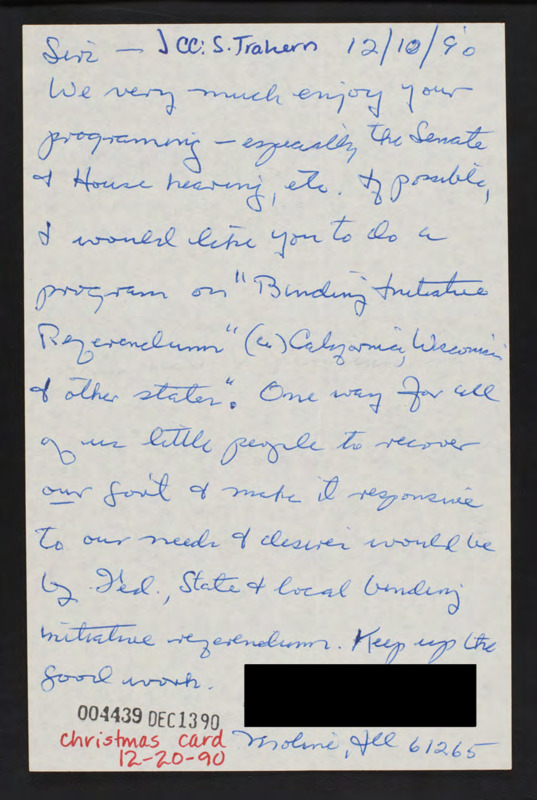 Sirs — CC: S. Trahern 12/10/90
We very much enjoy your
programing — especially the Senate
& House hearing, etc. If possible,
I would like you to do a
program on "Binding Initiative
Referendum" (as) California, Wisconsin
& other states". One way for all
of us little people to recover
our gov't & make it responsive
to our needs & desires would be
by Fed., State & local binding
initiative referendum. Keep up the
good work.
004439 DEC1390
christmas card
12-20-90
Moline, Ill 61265